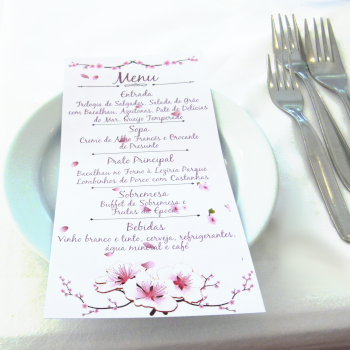 Menu
Entrada
Trilogia de Salgados, Salada de Grão
com Bacalhau, Azeitonas, Paté de Delícias
do Mar, Queijo Temperado
Sopa
Creme de Alho Francês e Crocante
de Presunto
Prato Principal
Bacalhau no Forno à Lezíria Parque
Lombinhos de Porco com Castanhas
Sobremesa
Buffet de Sobremesa e
Frutas da Época
Bebidas
Vinho branco e tinto, cerveja, refrigerantes,
água mineral e café